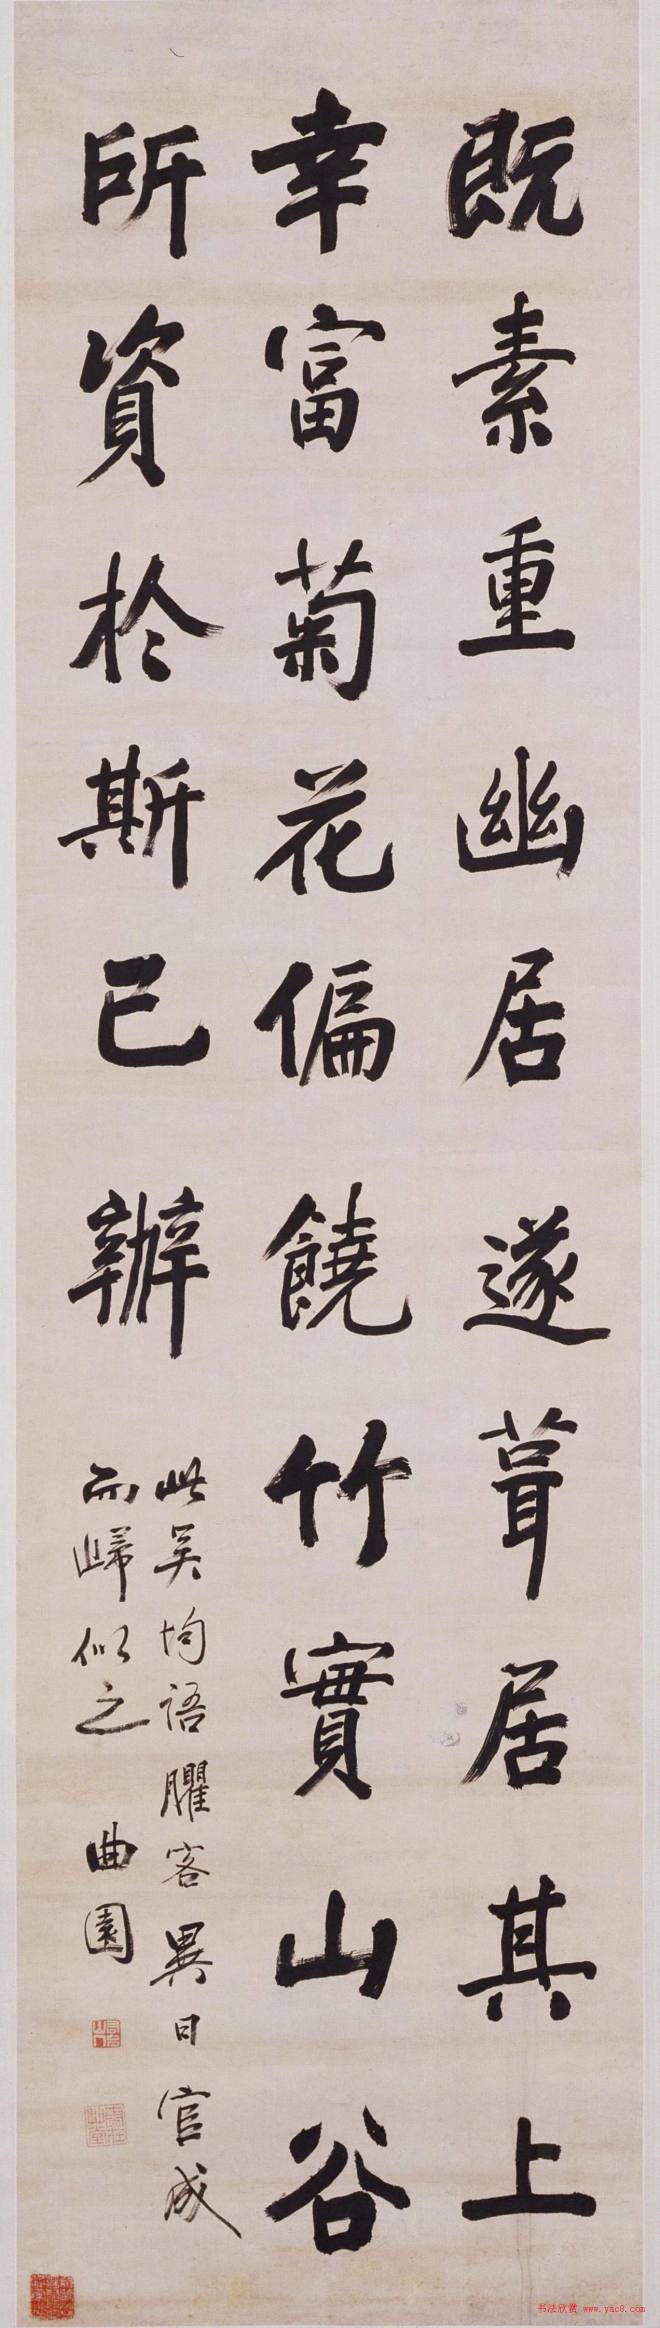 既素重幽居遂葺居其上
幸富菊花偏饒竹實山谷
所資於斯已辦
此吳均語臞客異日官成
而歸似之
曲園
书法欣赏 www.yac8.com